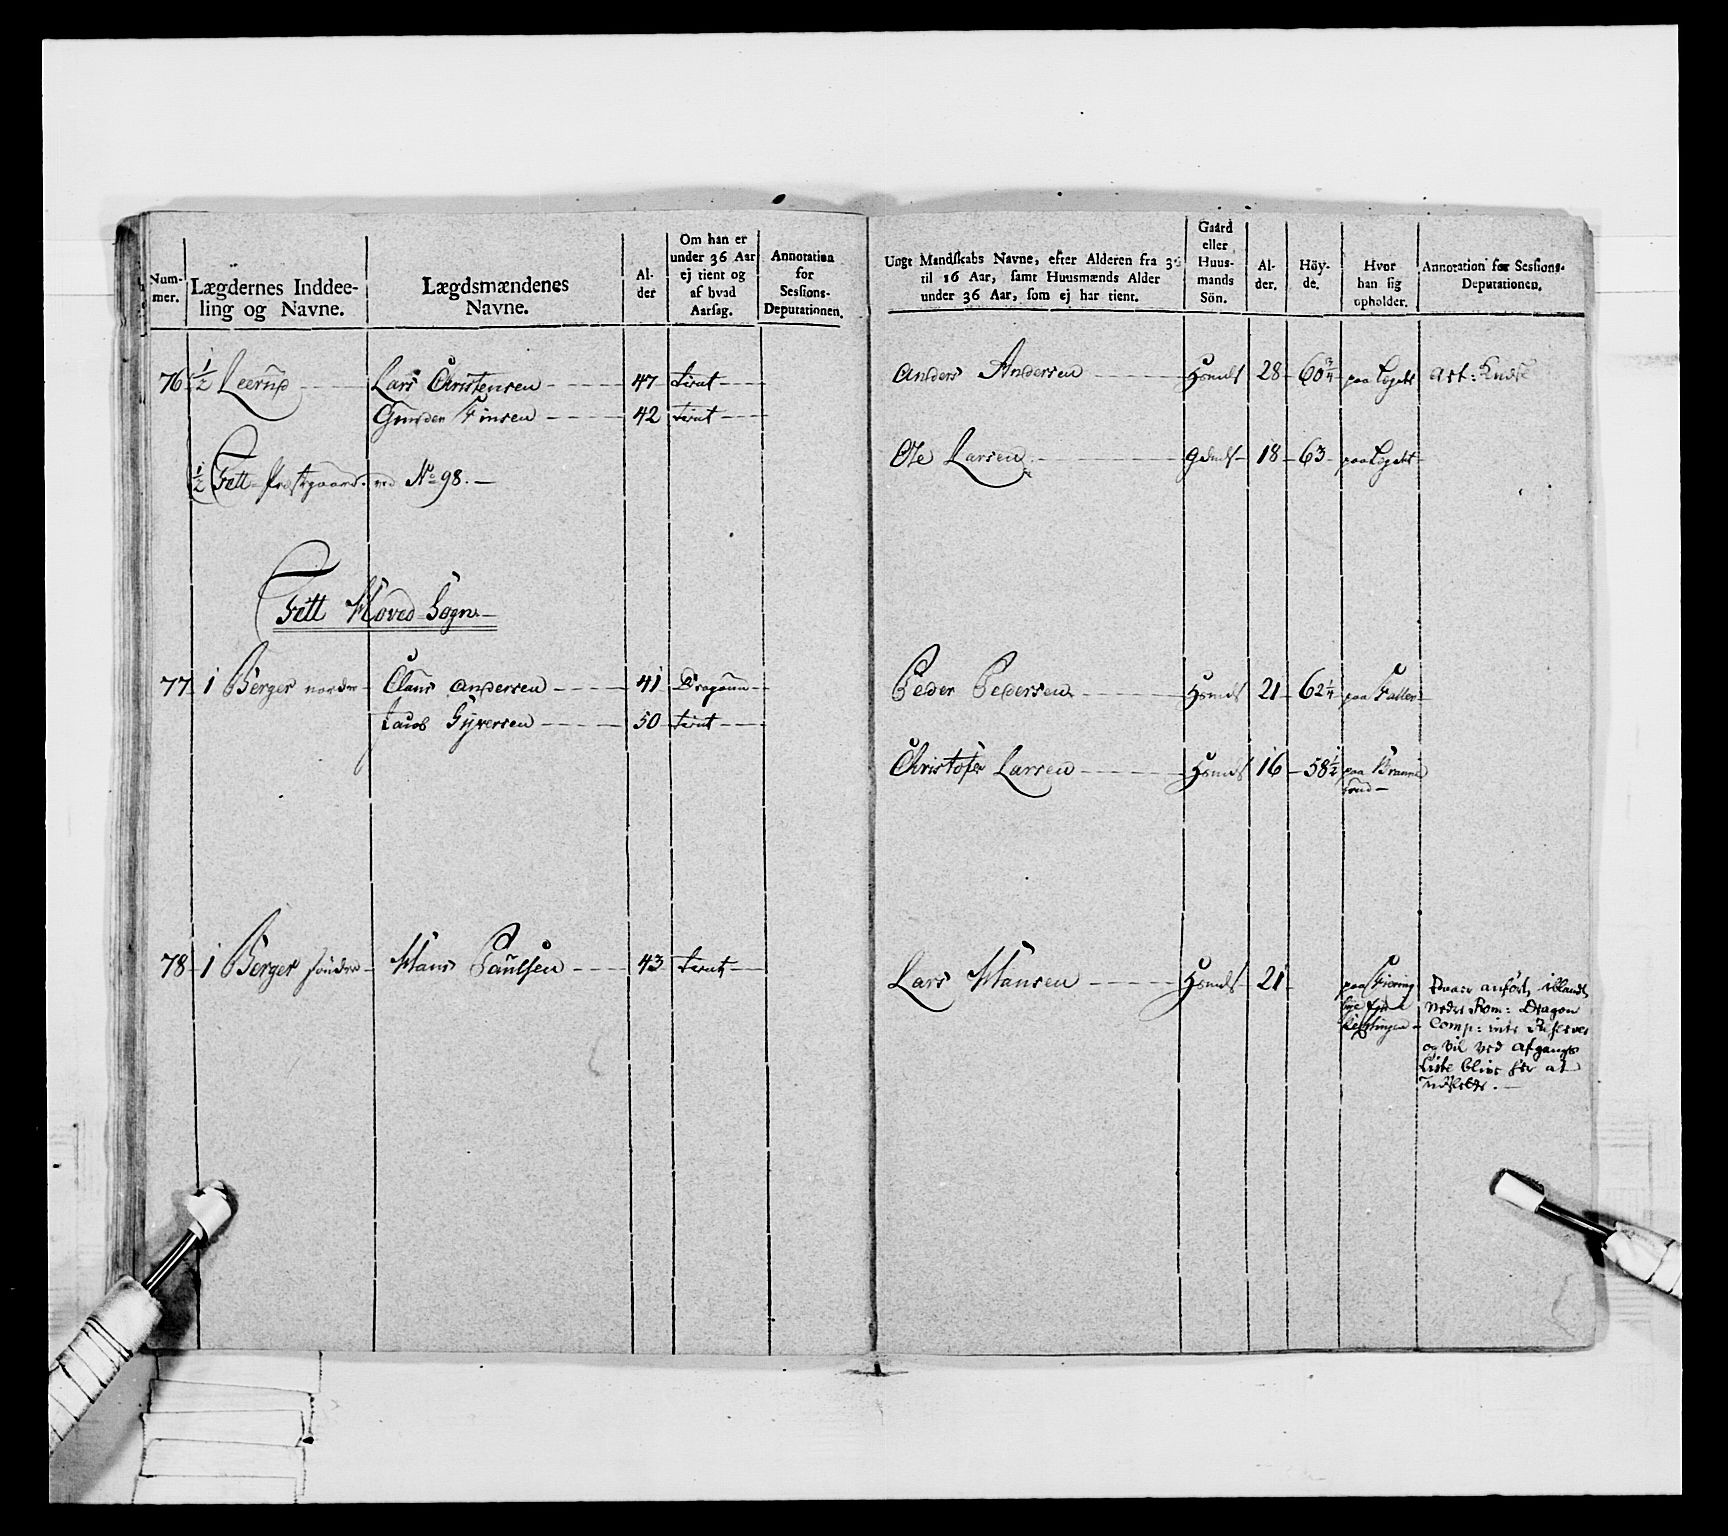 Num-
mer.
Lægdernes Inddee-
ling og Navne.
Lægdsmændenes
Navne.
Al-
der
Om han er
under 36 Aar
ej tient og
af hvad
Aarsag.
Annotation
for
Sessions-
Deputationen.
76 1/2 Leerud Lars Christensen 47 tient
Gunder Finsen 42 tient
1/2 Fett Præstegaard ved No 98.
Fett Hoved Sogn
77 1 Berger nordre Claus Andersen 41 Dragoun
Jacob Syversen 50 tient
78 1 Berger søndre Hans Paulsen 43 tient
Ungt Mandskabs Navne, efter Alderen fra 36
til 16 Aar, samt Huusmænds Alder
under 36 Aar, som ej har tient.
Gaard
eller
Huus-
mands
Sön.
Al-
der.
Höy-
de.
Hvor
han sig
opholder.
Annotation for Sessions-
Deputationen.
Anders Andersen 28 60 3/4 paa Logebt Art: Kudsk
Ole Larsen 18 63 paa Logebt
Peder Pedersen 21 62 1/4 paa Faller
Christofer Larsen 16 58 1/2 paa Branne
rud
Lars Hansen 21 paa
anført, iblandt
Nedre Rom: Dragon
Comp: Reserver
og vil ved Afgangs
Liste blive her at
Udslette.